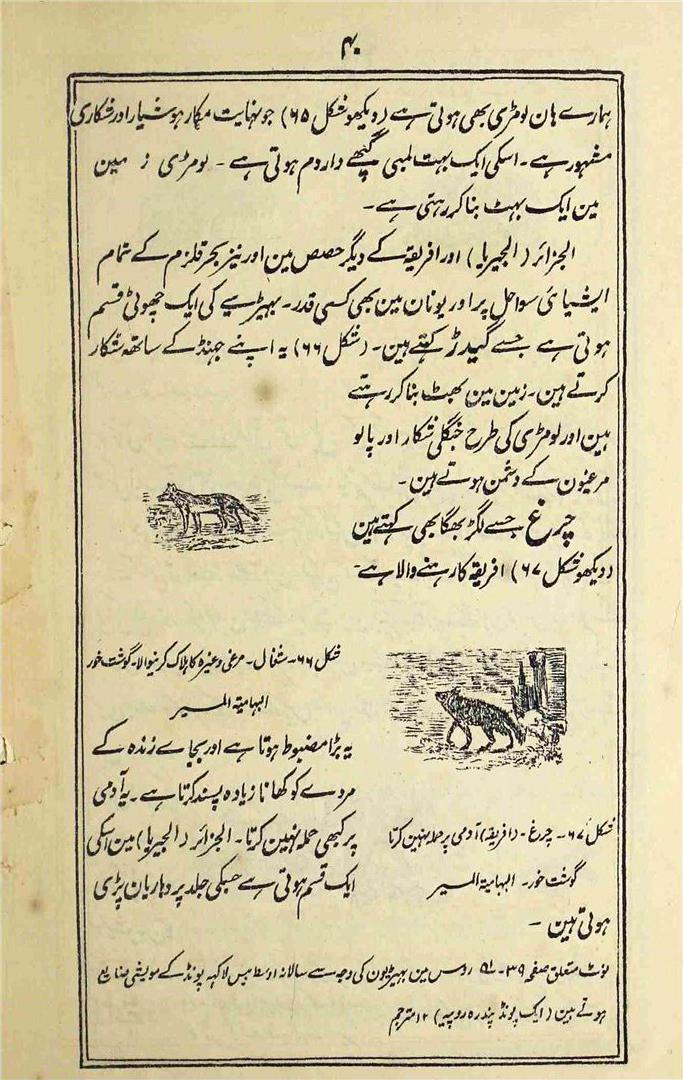 ۴۰
ہمارے ہان لومڑی بھی ہوتی ہے (دیکھو شکل ۶۵) جو نہایت مکار ہوشیار اور شکاری
مشہور ہے۔ اسکی ایک بہت لمبی گپھے دار دم ہوتی ہے۔ لومڑی زمین
مین ایک بہٹ بنا کر رہتی ہے۔
الجزائر (الجیریا) اور افریقہ کے دیگر حصص مین اور نیز بحر قلزم کے تمام
ایشیائی سواحل پر اور یونان مین بھی کسی قدر۔ بہیڑیے کی ایک چھوٹی قسم
ہوتی ہے جسے گیدڑ کہتے ہین۔ (شکل ۶۶) یہ اپنے جہنڈ کے ساتھ شکار
کرتے ہین۔ زمین مین بھٹ بنا کر رہتے
ہین اور لومڑی کی طرح جنگلی شکار اور پالو
مرغیون کے دشمن ہوتے ہین۔
چرغ جسے لگڑ بھگا بھی کہتے ہین
(دیکھو شکل ۶۷) افریقہ کا رہنے والا ہے۔
شکل ۶۶۔ شغال۔ مرغی وغیرہ کا ہلاک کرنیوالا۔ گوشت خور
ابہامیۃ المسیر
یہ بڑا مضبوط ہوتا ہے اور بجاے زندہ کے
مردے کو کھانا زیادہ پسند کرتا ہے۔ یہ آدمی
پر کبھی حملہ نہین کرتا۔ الجزائر (الجیریا) مین اسکی
ایک قسم ہوتی ہے جسکی جلد پر دہاریان پڑی
ہوتی ہین۔
شکل ۶۷۔ چرغ۔ (افریقہ) آدمی پر حملہ نہین کرتا
گوشت خور۔ ابہامیۃ المسیر
نوٹ متعلق صفحہ ۳۹۔ روس مین بہیڑیون کی وجہ سے سالانہ اوسط بیس لاکہہ پونڈ کے مویشی ضایع
ہوتے ہین (ایک پونڈ پندرہ روپیہ) ۱۲ مترجم